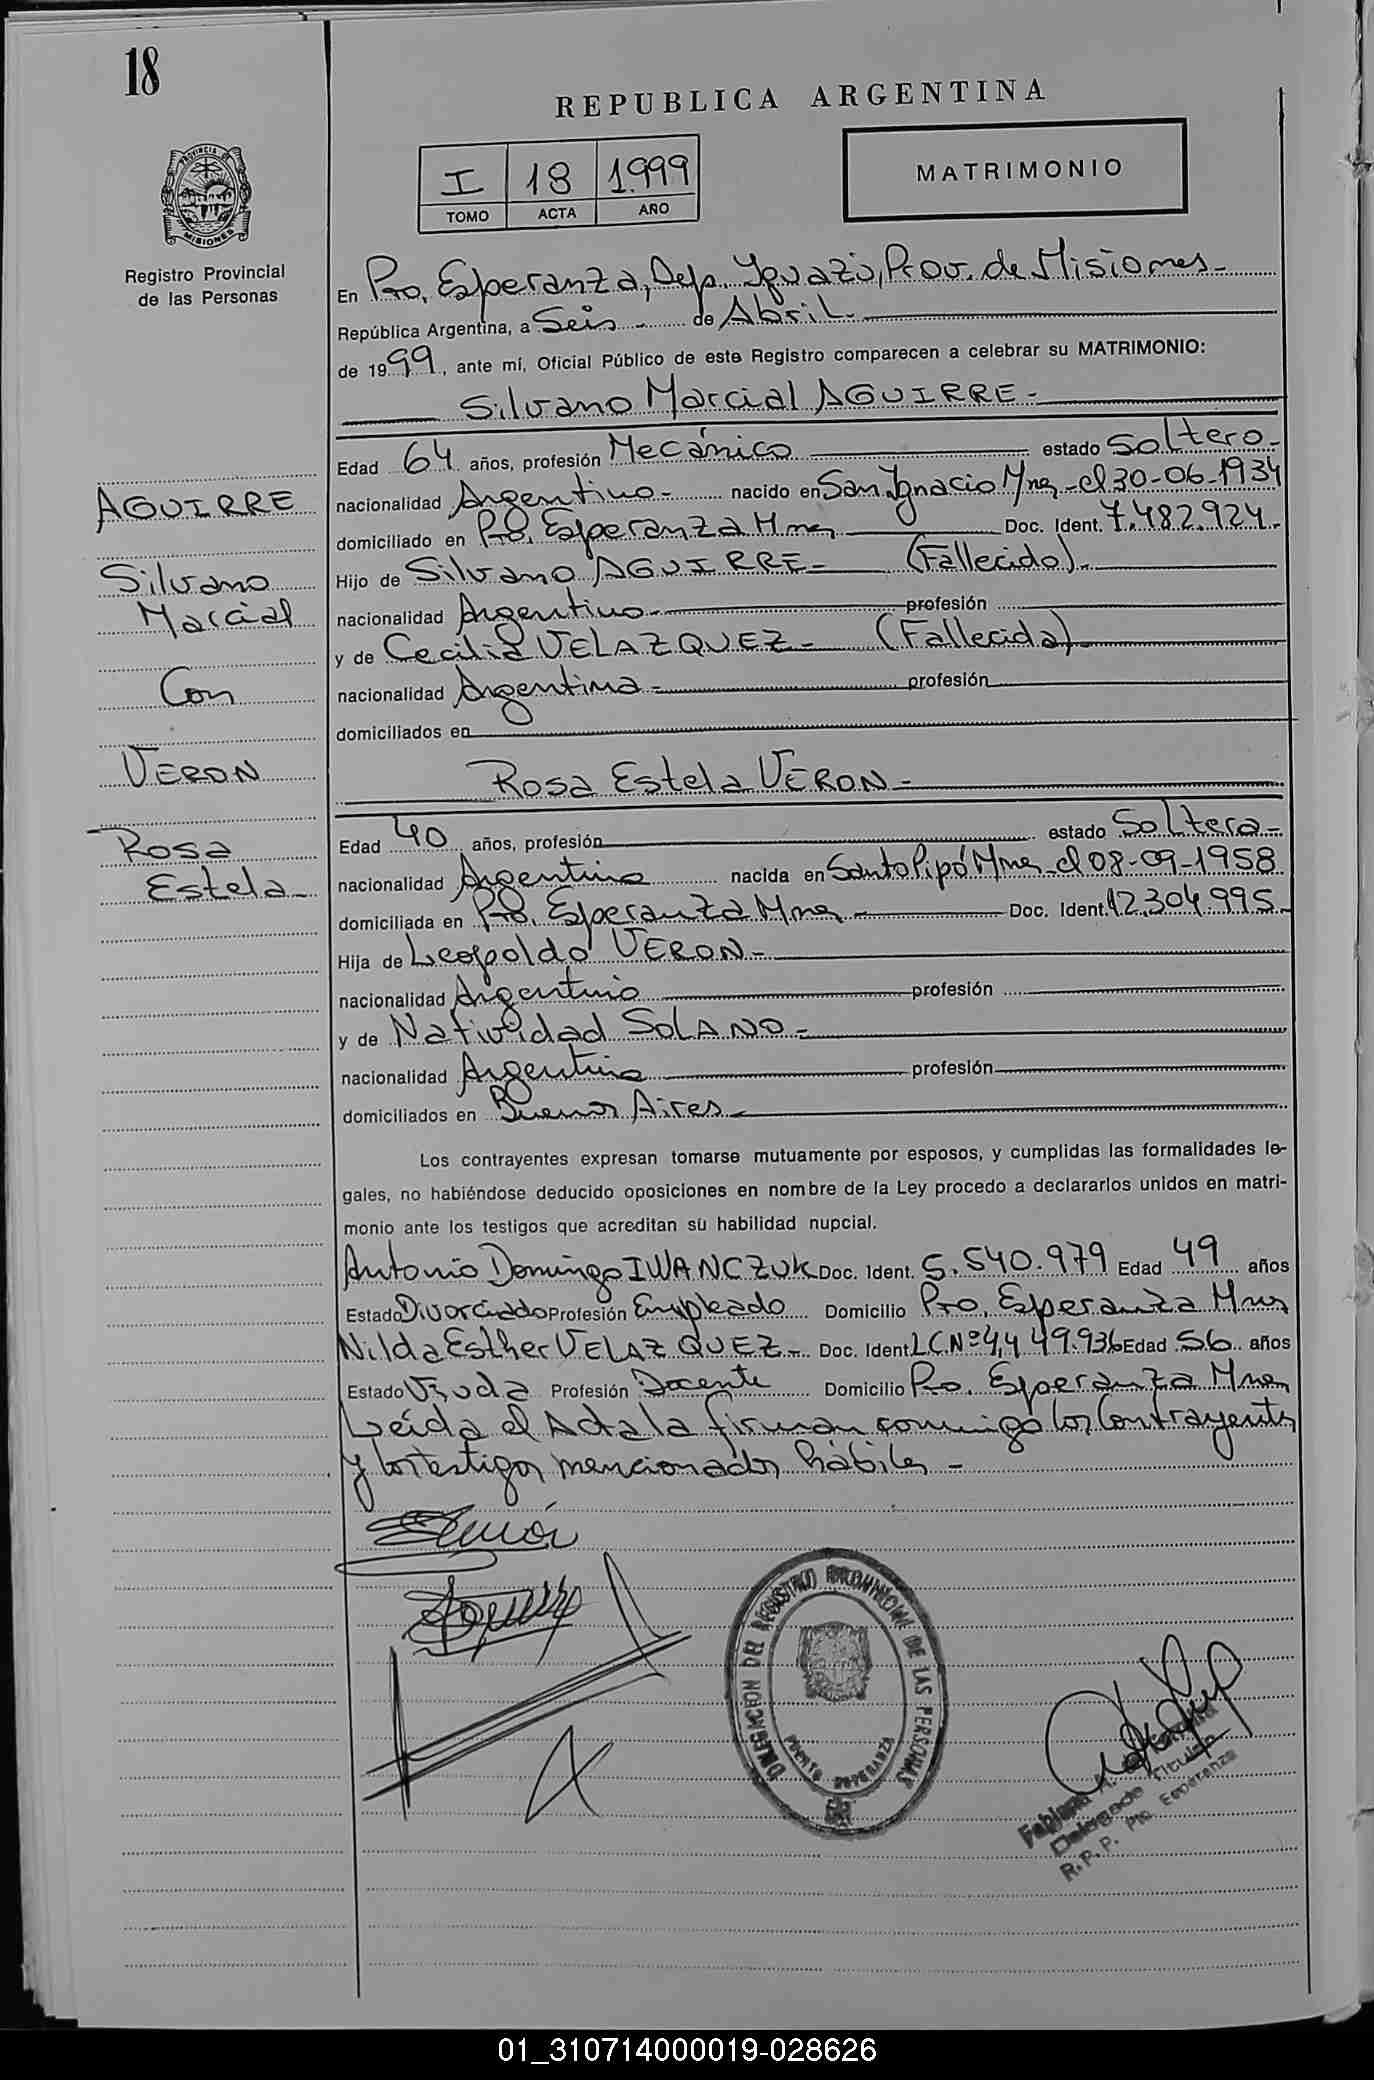 18
REPUBLICA ARGENTINA
I 18 1.999
TOMO ACTA AÑO
MATRIMONIO
PROVINCIA DE
MISIONES
Registro Provincial
de las Personas
En Pto. Esperanza, Dep. Iguazú, Prov. de Misiones.-
República Argentina, a Seis.- de Abril.-
de 1999, ante mí, Oficial Público de este Registro comparecen a celebrar su MATRIMONIO:
Silvano Marcial AGUIRRE.-
Edad 64 años, profesión Mecánico estado Soltero.-
nacionalidad Argentino.- nacido en San Ignacio Mnes.- el 30-06-1934
domiciliado en Pto. Esperanza Mnes Doc. Ident. 7.482.924.-
Hijo de Silvano AGUIRRE.- (Fallecido).-
nacionalidad Argentino.- profesión
y de Cecilia VELAZQUEZ.- (Fallecida)
nacionalidad Argentina.- profesión
domiciliados en
Rosa Estela VERON.-
Edad 40 años, profesión estado Soltera.-
nacionalidad Argentina nacida en Santo Pipó Mnes.- el 08-09-1958
domiciliada en Pto. Esperanza Mnes.- Doc. Ident. 12.304.995.-
Hija de Leopoldo VERON.-
nacionalidad Argentino profesión
y de Natividad SOLANO.-
nacionalidad Argentina profesión
domiciliados en Buenos Aires.-
Los contrayentes expresan tomarse mutuamente por esposos, y cumplidas las formalidades le-
gales, no habiéndose deducido oposiciones en nombre de la Ley procedo a declararlos unidos en matri-
monio ante los testigos que acreditan su habilidad nupcial.
Antonio Domingo IWANCZUK Doc. Ident. 5.540.979 Edad 49 años
Estado Divorciado Profesión Empleado Domicilio Pto. Esperanza Mnes
Nilda Esther VELAZQUEZ.- Doc. Ident. L.C.Nº 4.449.936 Edad 56 años
Estado Viuda Profesión Docente Domicilio Pto. Esperanza Mnes
Leída el Acta la firman conmigo los Contrayentes
y los testigos mencionados hábiles.-
AGUIRRE
Silvano
Marcial
Con
VERON
Rosa
Estela.-
DELEGACION DEL REGISTRO PROVINCIAL DE LAS PERSONAS
PUERTO ESPERANZA
Delegado Titular
R.P.P. Pto. Esperanza
01_310714000019-028626